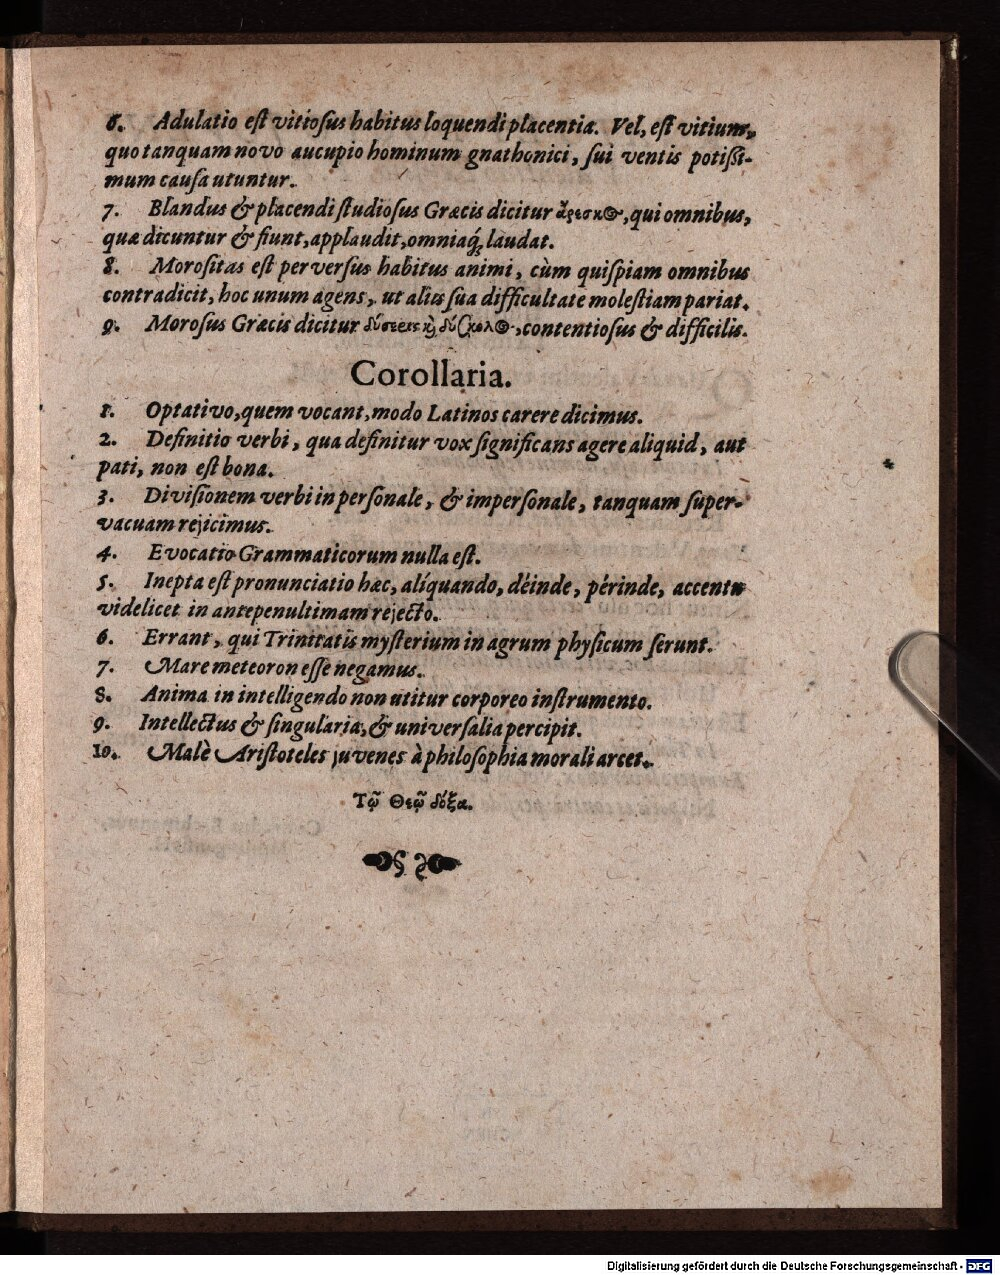 6. Adulatio eſt vitioſus habitus loquendi placentia. Vel, eſt vitium,
quo tanquam novo aucupio hominum gnathonici, ſui ventis potiſſi-
mum cauſa utuntur.
7. Blandus & placendi ſtudioſus Græcis dicitur ἄρεσκος, qui omnibus,
quæ dicuntur & fiunt, applaudit, omniaq́; laudat.
8. Moroſitas eſt perverſus habitus animi, cùm quiſpiam omnibus
contradicit, hoc unum agens, ut aliis ſua difficultate moleſtiam pariat.
9. Moroſus Græcis dicitur δύσερις κὶ δύσκολος, contentioſus & difficilis.
Corollaria.
1. Optativo, quem vocant, modo Latinos carere dicimus.
2. Definitio verbi, qua definitur vox ſignificans agere aliquid, aut
pati, non eſt bona.
3. Diviſionem verbi in perſonale, & imperſonale, tanquam ſuper-
vacuam rejicimus.
4. Evocatio Grammaticorum nulla eſt.
5. Inepta eſt pronunciatio hæc, alíquando, déinde, périnde, accentu
videlicet in antepenultimam rejecto.
6. Errant, qui Trinitatis myſterium in agrum phyſicum ſerunt.
7. Mare meteoron eſſe negamus.
8. Anima in intelligendo non utitur corporeo inſtrumento.
9. Intellectus & ſingularia, & univerſalia percipit.
10. Malè Ariſtoteles juvenes à philoſophia morali arcet.
Τῷ Θεῷ δόξα.
Digitalisierung gefördert durch die Deutsche Forschungsgemeinschaft - DFG